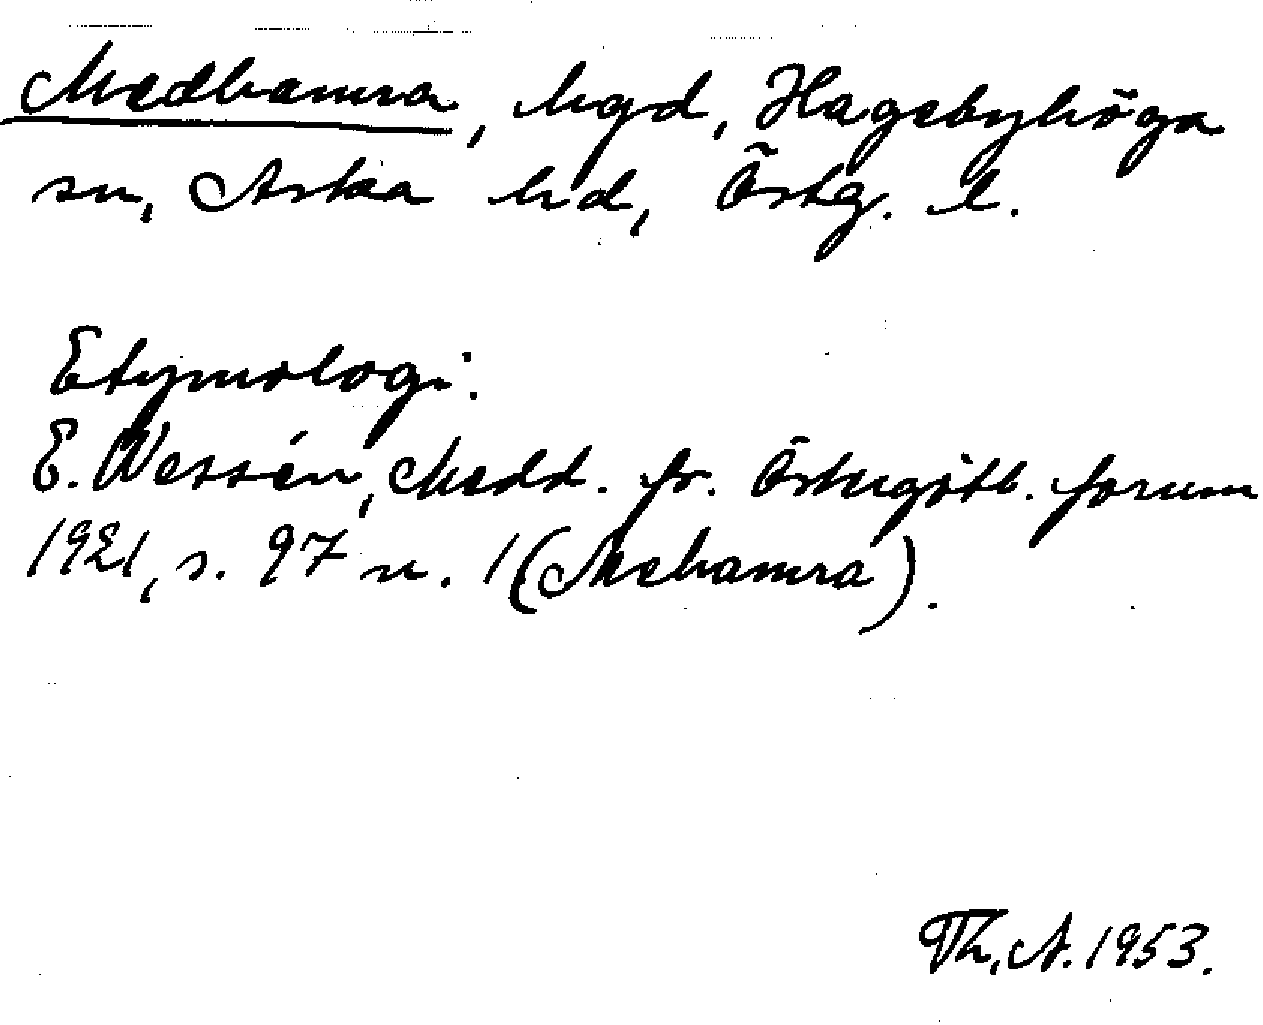 Medhamra, hgd, Hagebyhöga
sn, Aska hd, Östg. l.
Etymologi:
E. Wessén, Medd. fr. Östergötl. forum
1921, s. 97 n. 1 (Mehamra).
Th. A. 1953.